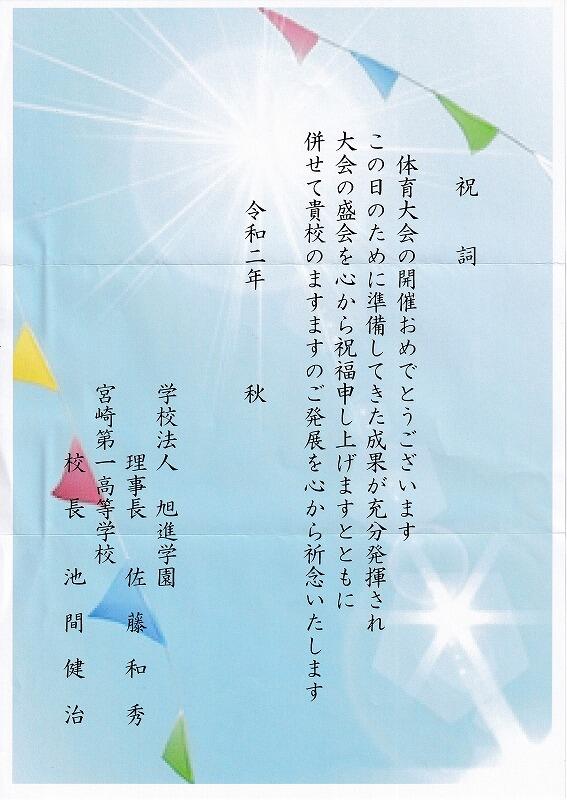 祝　詞
体育大会の開催おめでとうございます
この日のために準備してきた成果が充分発揮され
大会の盛会を心から祝福申し上げますとともに
併せて貴校のますますのご発展を心から祈念いたします
令和二年　秋
学校法人　旭進学園
理事長　佐藤和秀
宮崎第一高等学校
校長　池間健治